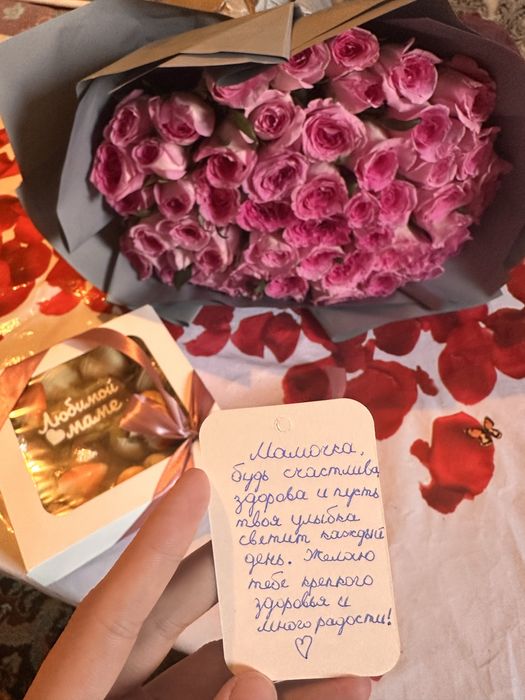 Любимой
маме
Мамочка,
будь счастлива,
здорова и пусть
твоя улыбка
светит каждый
день. Желаю
тебе крепкого
здоровья и
много радости!